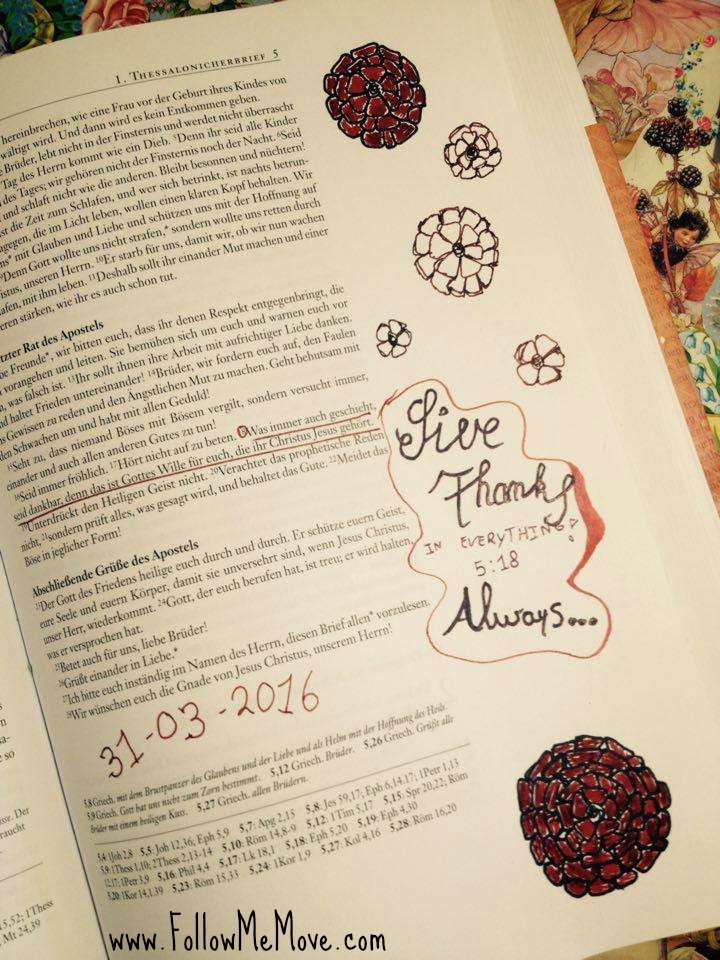 1. THESSALONICHERBRIEF 5
hereinbrechen, wie eine Frau vor der Geburt ihres Kindes von
wältigt wird. Und dann wird es kein Entkommen geben.
e Brüder, lebt nicht in der Finsternis und werdet nicht überrascht
Tag des Herrn kommt wie ein Dieb. ⁵Denn ihr seid alle Kinder
des Tages; wir gehören nicht der Finsternis noch der Nacht. ⁶Seid
und schlaft nicht wie die anderen. Bleibt besonnen und nüchtern!
ist die Zeit zum Schlafen, und wer sich betrinkt, ist nachts betrun-
gegen, die im Licht leben, wollen einen klaren Kopf behalten. Wir
ns* mit Glauben und Liebe und schützen uns mit der Hoffnung auf
⁹Denn Gott wollte uns nicht strafen,* sondern wollte uns retten durch
istus, unseren Herrn. ¹⁰Er starb für uns, damit wir, ob wir nun wachen
afen, mit ihm leben. ¹¹Deshalb sollt ihr einander Mut machen und einer
eren stärken, wie ihr es auch schon tut.
tzter Rat des Apostels
be Freunde*, wir bitten euch, dass ihr denen Respekt entgegenbringt, die
vorangehen und leiten. Sie bemühen sich um euch und warnen euch vor
n, was falsch ist. ¹³Ihr sollt ihnen ihre Arbeit mit aufrichtiger Liebe danken.
haltet Frieden untereinander! ¹⁴Brüder, wir fordern euch auf, den Faulen
s Gewissen zu reden und den Ängstlichen Mut zu machen. Geht behutsam mit
den Schwachen um und habt mit allen Geduld!
¹⁵Seht zu, dass niemand Böses mit Bösem vergilt, sondern versucht immer,
einander und auch allen anderen Gutes zu tun!
¹⁶Seid immer fröhlich. ¹⁷Hört nicht auf zu beten. ¹⁸Was immer auch geschieht,
seid dankbar, denn das ist Gottes Wille für euch, die ihr Christus Jesus gehört.
¹⁹Unterdrückt den Heiligen Geist nicht. ²⁰Verachtet das prophetische Reden
nicht, ²¹sondern prüft alles, was gesagt wird, und behaltet das Gute. ²²Meidet das
Böse in jeglicher Form!
Abschließende Grüße des Apostels
²³Der Gott des Friedens heilige euch durch und durch. Er schütze euern Geist,
eure Seele und euern Körper, damit sie unversehrt sind, wenn Jesus Christus,
unser Herr, wiederkommt. ²⁴Gott, der euch berufen hat, ist treu; er wird halten,
was er versprochen hat.
²⁵Betet auch für uns, liebe Brüder!
²⁶Grüßt einander in Liebe.*
²⁷Ich bitte euch inständig im Namen des Herrn, diesen Brief allen* vorzulesen.
²⁸Wir wünschen euch die Gnade von Jesus Christus, unserem Herrn!
31-03-2016
5,8 Griech. mit dem Brustpanzer des Glaubens und der Liebe und als Helm mit der Hoffnung des Heils.
5,9 Griech. Gott hat uns nicht zum Zorn bestimmt. 5,12 Griech. Brüder. 5,26 Griech. Grüßt alle
Brüder mit einem heiligen Kuss. 5,27 Griech. allen Brüdern.
5,4: 1Joh 2,8 5,5: Joh 12,36; Eph 5,9 5,7: Apg 2,15 5,8: Jes 59,17; Eph 6,14.17; 1Petr 1,13
5,9: 1Thess 1,10; 2Thess 2,13-14 5,10: Röm 14,8-9 5,12: 1Tim 5,17 5,15: Spr 20,22; Röm
12,17; 1Petr 3,9 5,16: Phil 4,4 5,17: Lk 18,1 5,18: Eph 5,20 5,19: Eph 4,30
5,20: 1Kor 14,1.39 5,23: Röm 15,33 5,24: 1Kor 1,9 5,27: Kol 4,16 5,28: Röm 16,20
Give
Thanks
IN EVERYTHING!
5:18
Always...
15,52; 1Thess
Mt 24,39
www.FollowMeMove.com